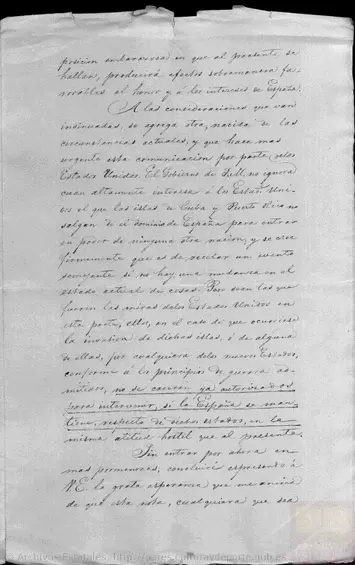 posicion embarazosa en que al presente se
hallan, producirá efectos sobremanera fa-
vorables al honor y á los intereses de España.
A las consideraciones que van
insinuadas, se agrega otra, nacida de las
circunstancias actuales, y que hace mas
urgente esta comunicacion por parte de los
Estados Unidos. El Gobierno de S. M. no ignora
cuan altamente interesa á los Estados Uni-
dos el que las islas de Cuba y Puerto Rico no
salgan de el dominio de España para entrar
en poder de ninguna otra nacion, y se cree
firmemente que es de recelar un evento
semejante si no hay una mudanza en el
estado actual de cosas. Por
fueren las miras de los Estados Unidos en
esta parte, ellos, en el caso de que ocurriese
la invasion de dichas islas, ó de alguna
de ellas, por cualquiera de los nuevos Estados,
conforme á los principios de guerra ad-
mitidos, no se creerán ya autorizados
para intervenir, si la España se man-
tiene, respecto de dichos estados, en la
misma actitud hostil que al presente.
Sin entrar por ahora en
mas pormenores, concluiré expresando á
V.E. la grata esperanza que me anima
de que esta nota, cualquiera que sea
Archivos Estatales